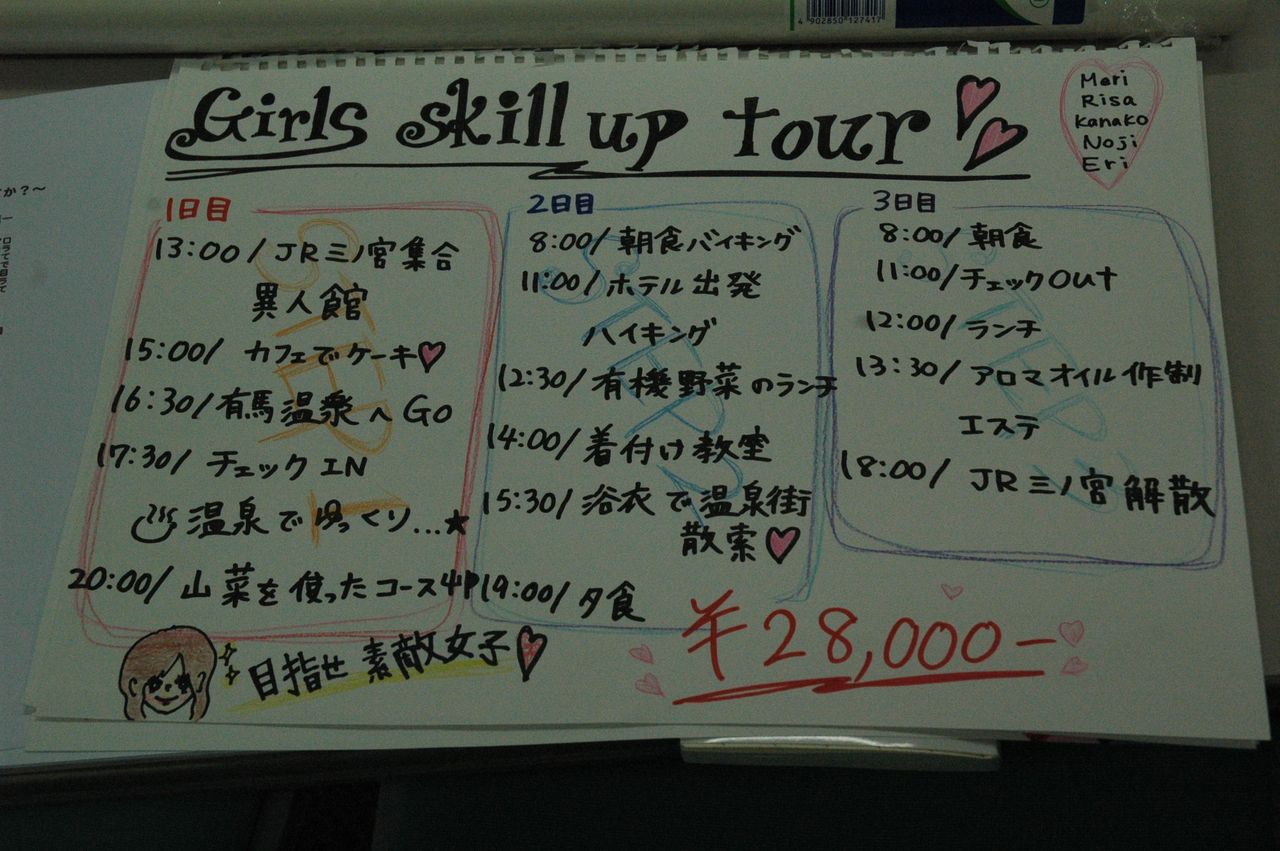 4 902850 127417
Girls skill up tour
Mari
Risa
Kanako
Noji
Eri
1日目
13:00/ JR三ノ宮集合
異人館
15:00/ カフェでケーキ♡
16:30/有馬温泉へGO
17:30/ チェックIN
♨温泉でゆっくり...★
20:00/ 山菜を使ったコース料理
2日目
8:00/朝食バイキング
11:00/ホテル出発
ハイキング
12:30/有機野菜のランチ
14:00/着付け教室
15:30/浴衣で温泉街
散索♡
19:00/夕食
3日目
8:00/朝食
11:00/チェックOut
12:00/ランチ
13:30/アロマオイル作制
エステ
18:00/ JR三ノ宮解散
目指せ 素敵女子♡
¥28,000-
STEP 1
STEP 2
STEP 3
か?~